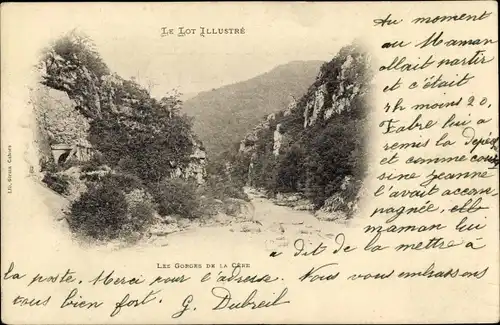 LE LOT ILLUSTRÉ
Au moment
au Maman
allait partir
et c'était
rh moins 20,
Fabre lui a
remis la dépê
et comme cous
sine Jeanne
l'avait accom-
pagnée, elle
maman lui
a dit de la mettre à
LES GORGES DE LA CÈRE
la poste. Merci pour l'adresse. Nous vous embrassons
tous bien fort. G. Dubreil
Lib. Girma Cahors